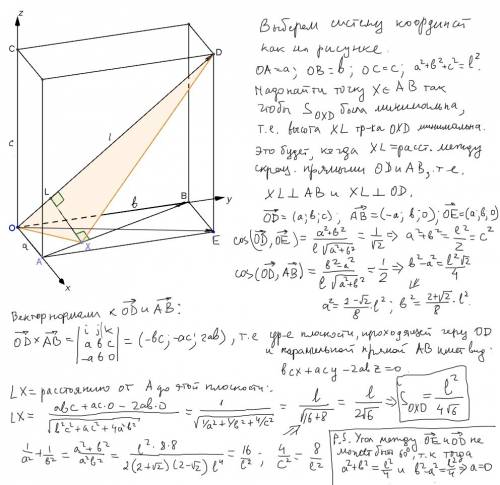 z
C
D
c
l
L
B
y
b
O
a
X
A
E
x
Выберем систему координат
как на рисунке.
OA=a; OB=b; OC=c; a²+b²+c²=l².
Надо найти точку X∈AB так
чтобы S_OXD была минимальна,
т.е. высота XL тр-ка OXD минимальна.
Это будет, когда XL=расст. между
скрещ. прямыми OD и AB, т.е.
XL⊥AB и XL⊥OD.
OD=(a;b;c); AB=(-a;b;0); OE=(a;b;0)
cos(OD,OE)=(a²+b²)/(l√(a²+b²))=1/√2 ⇒ a²+b²=l²/2=c²
cos(OD,AB)=(b²-a²)/(l√(a²+b²))=1/2 ⇒ b²-a²=l²√2/4
⇓
a²=(2-√2)/8·l²; b²=(2+√2)/8·l².
Вектор нормали к OD и AB:
OD×AB=|i j k; a b c; -a b 0|=(-bc; -ac; 2ab), т.е ур-е плоскости, проходящей через OD
и параллельной прямой AB имеет вид:
bcx+acy-2abz=0
LX= расстоянию от A до этой плоскости:
LX=(abc+ac·0-2ab·0)/√(b²c²+a²c²+4a²b²)=1/√(1/a²+1/b²+4/c²)=l/√(16+8)=l/(2√6) ⇒ S_OXD=l²/(4√6)
1/a²+1/b²=(a²+b²)/(a²b²)=(l²·8·8)/(2(2+√2)(2-√2)l⁴)=16/l²; 4/c²=8/l²
P.S. Угол между OE и OD не
может быть 60°, т.к тогда
a²+b²=l²/4 и b²-a²=l²/4 ⇒ a=0